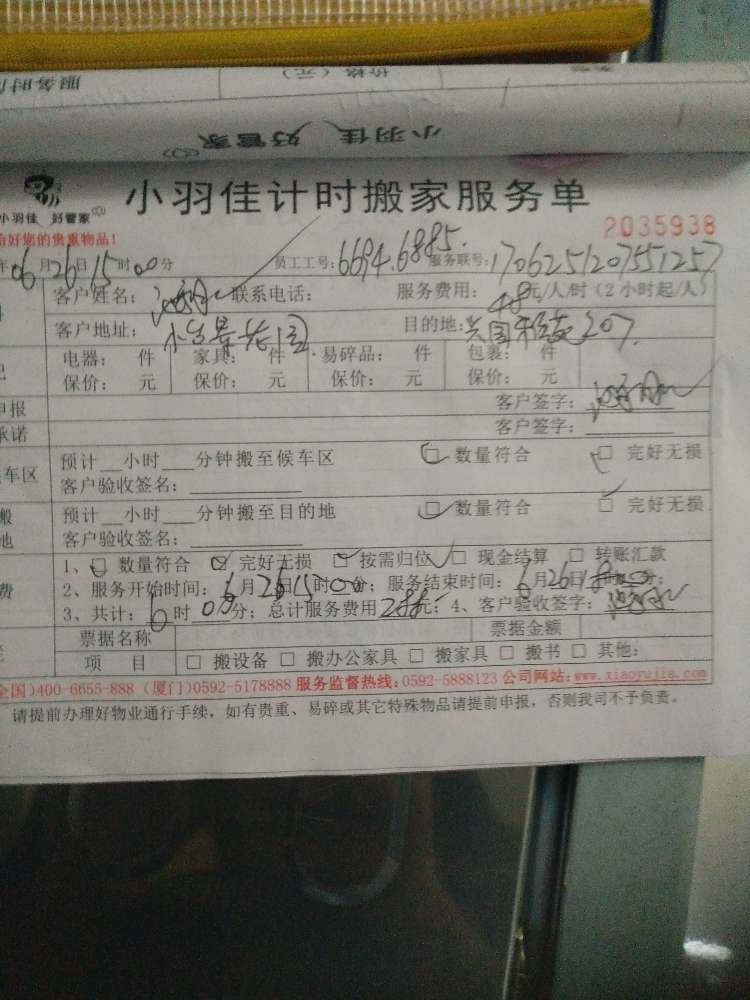 服务时
价格（元）
小羽佳 好管家
小羽佳计时搬家服务单
小羽佳 好管家
2035938
给好您的贵重物品！
年06月26日15时00分 员工工号：6694.6885. 服务联号：1706251207551257
客户姓名： 联系电话： 服务费用：48元/人/时（2小时起/人）
客户地址： 目的地：兴国 207
电器： 件 家具： 件 易碎品： 件 包裹： 件
保价： 元 保价： 元 保价： 元 保价： 元
申报 客户签字：
承诺 客户签字：
车区 预计__小时___分钟搬至候车区 □ 数量符合 □ 完好无损
客户验收签名：
搬 预计__小时___分钟搬至目的地 □ 数量符合 □ 完好无损
地 客户验收签名：
1、□ 数量符合 □ 完好无损 □ 按需归位 □ 现金结算 □ 转账汇款
费 2、服务开始时间：6月26日15时00分；服务结束时间：6月26日18
3、共计：6时00分；总计服务费用288元；4、客户验收签字：
票据名称 票据金额
项 目 □ 搬设备 □ 搬办公家具 □ 搬家具 □ 搬书 □ 其他：
全国)400-6655-888 (厦门)0592-5178888 服务监督热线：0592-5888123 公司网站：www.xiaoyujia.com
请提前办理好物业通行手续，如有贵重、易碎或其它特殊物品请提前申报，否则我司不予负责。